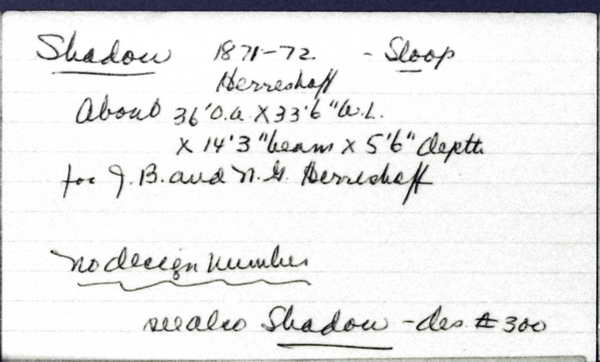 Shadow 1871-72 - Sloop
Herreshoff
About 36' O.a. X 33'6" W.L.
X 14'3" beam X 5'6" depth
for J. B. and N. G. Herreshoff
no design number
see also Shadow - des # 300